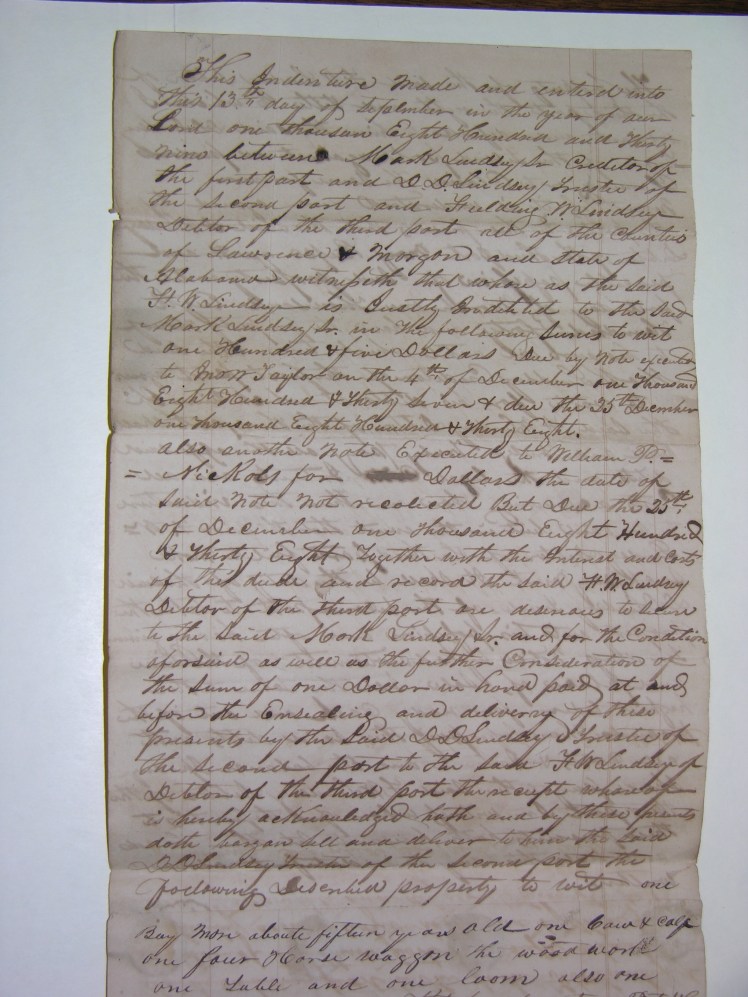 This Indenture Made and enterd into
this 13th day of September in the year of our
Lord one thousan Eight Hundred and Thirty
nine between Mark Lindsey Sr Creditor of
the first part and D. D. Lindsey Trustee of
the second part and Fielding W Lindsey
Debtor of the third part all of the counties
of Lawrence & Morgon and State of
Alabama witnesseth that whare as the said
F. W. Lindsey is Justly Indebted to the said
Mark Lindsey Sr. in the following sums to wit
one Hundred & five Dollars Due by Note executed
to Taylor on the 4th of December one Thousand
Eight Hundred & Thirty seven & due the 25th December
one thousand Eight Hundred & Thirty Eight.
also another Note Executed to William P. =
= Nickols for Dollars the date of
said Note Not recolected But Due the 25th
of December one thousand Eight Hundred
& Thirty Eight Together with the Interest and Costs
of this deed and record the said F. W. Lindsey
Debtor of the third part are desirous to secure
to the said Mark Lindsey Sr. and for the Condition
aforsaid as well as the further Consideration of
the sum of one Dollar in hand paid at and
before the Ensealing and delivery of these
presents by the said D D Lindsey Trustee of
the second part to the said F W Lindsey
Debtor of the third part the receipt whareof
is hereby acknowledged hath and by these presents
doth bargan sell and deliver to him the said
D D Lindsey Trustee of the second part the
following Described property to wit one
Bay Mare about fifteen years old one Cow & calf
one four Horse waggon the wood work
one Table and one loom also one